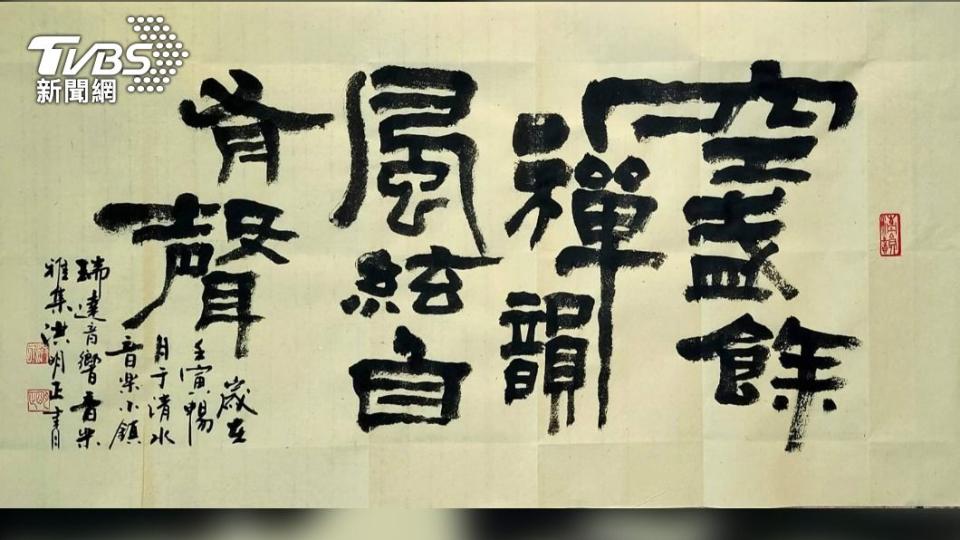 TVBS
新聞網
空盡餘
禪韻
風絃自
有聲
歲在
壬寅暢
月于清水
音樂小鎮
瑞達音響音樂
雅集洪明正書